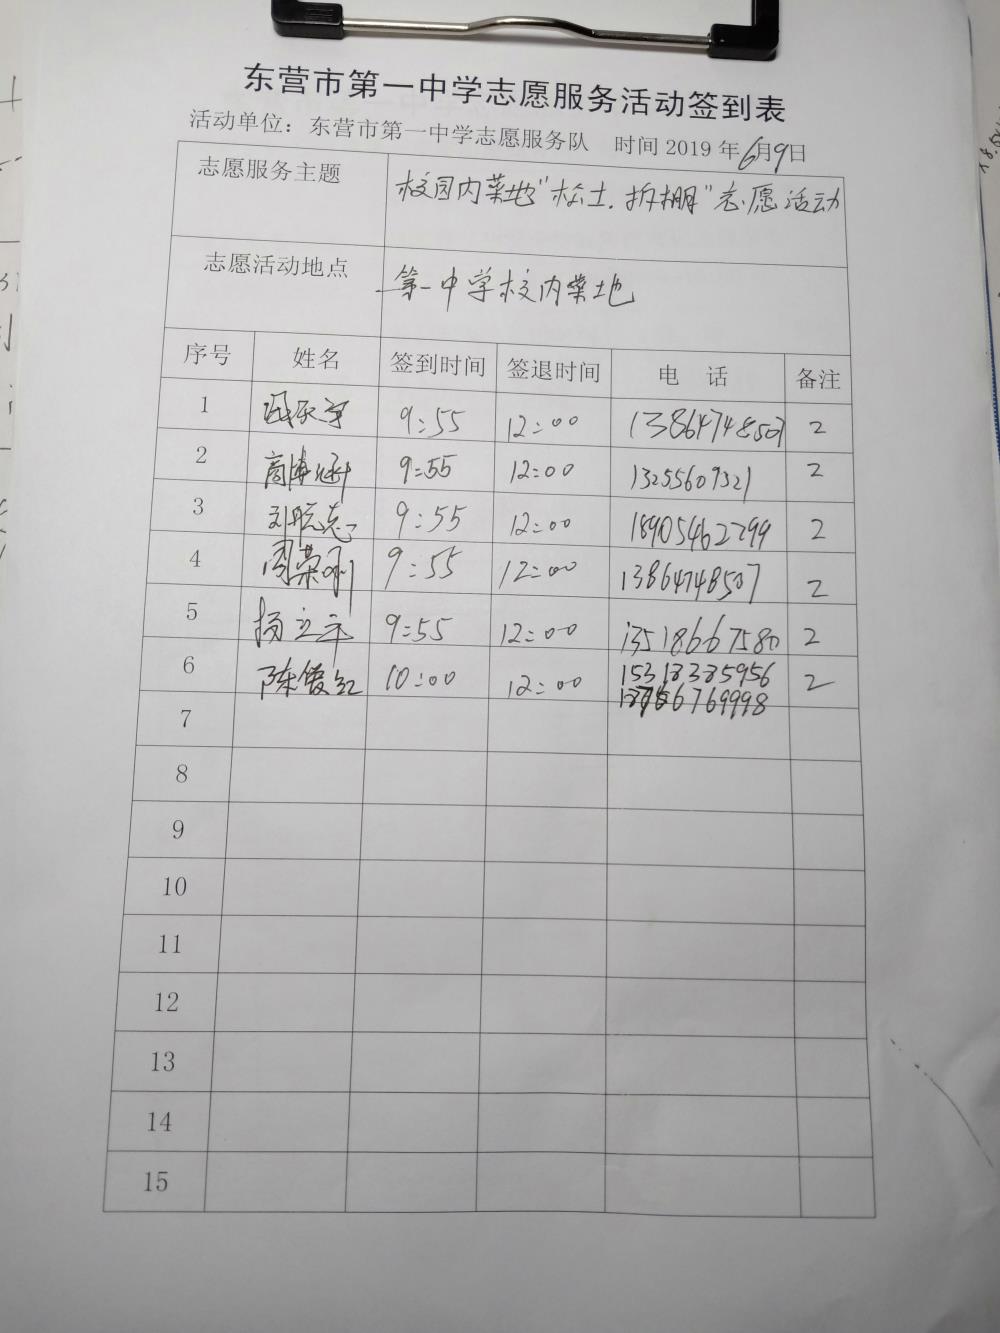 东营市第一中学志愿服务活动签到表
活动单位：东营市第一中学志愿服务队 时间 2019 年 6月9日
志愿服务主题 校园内菜地"松土.拆棚"志愿活动
志愿活动地点 第一中学校内菜地
序号 姓名 签到时间 签退时间 电 话 备注
1 9:55 12:00 13864748507 2
2 商博涵 9:55 12:00 13255609321 2
3 9:55 12:00 18905462799 2
4 周荣刚 9:55 12:00 13864748507 2
5 杨立平 9:55 12:00 13518667580 2
6 陈俊红 10:00 12:00 15318385956 2
7
8
9
10
11
12
13
14
15